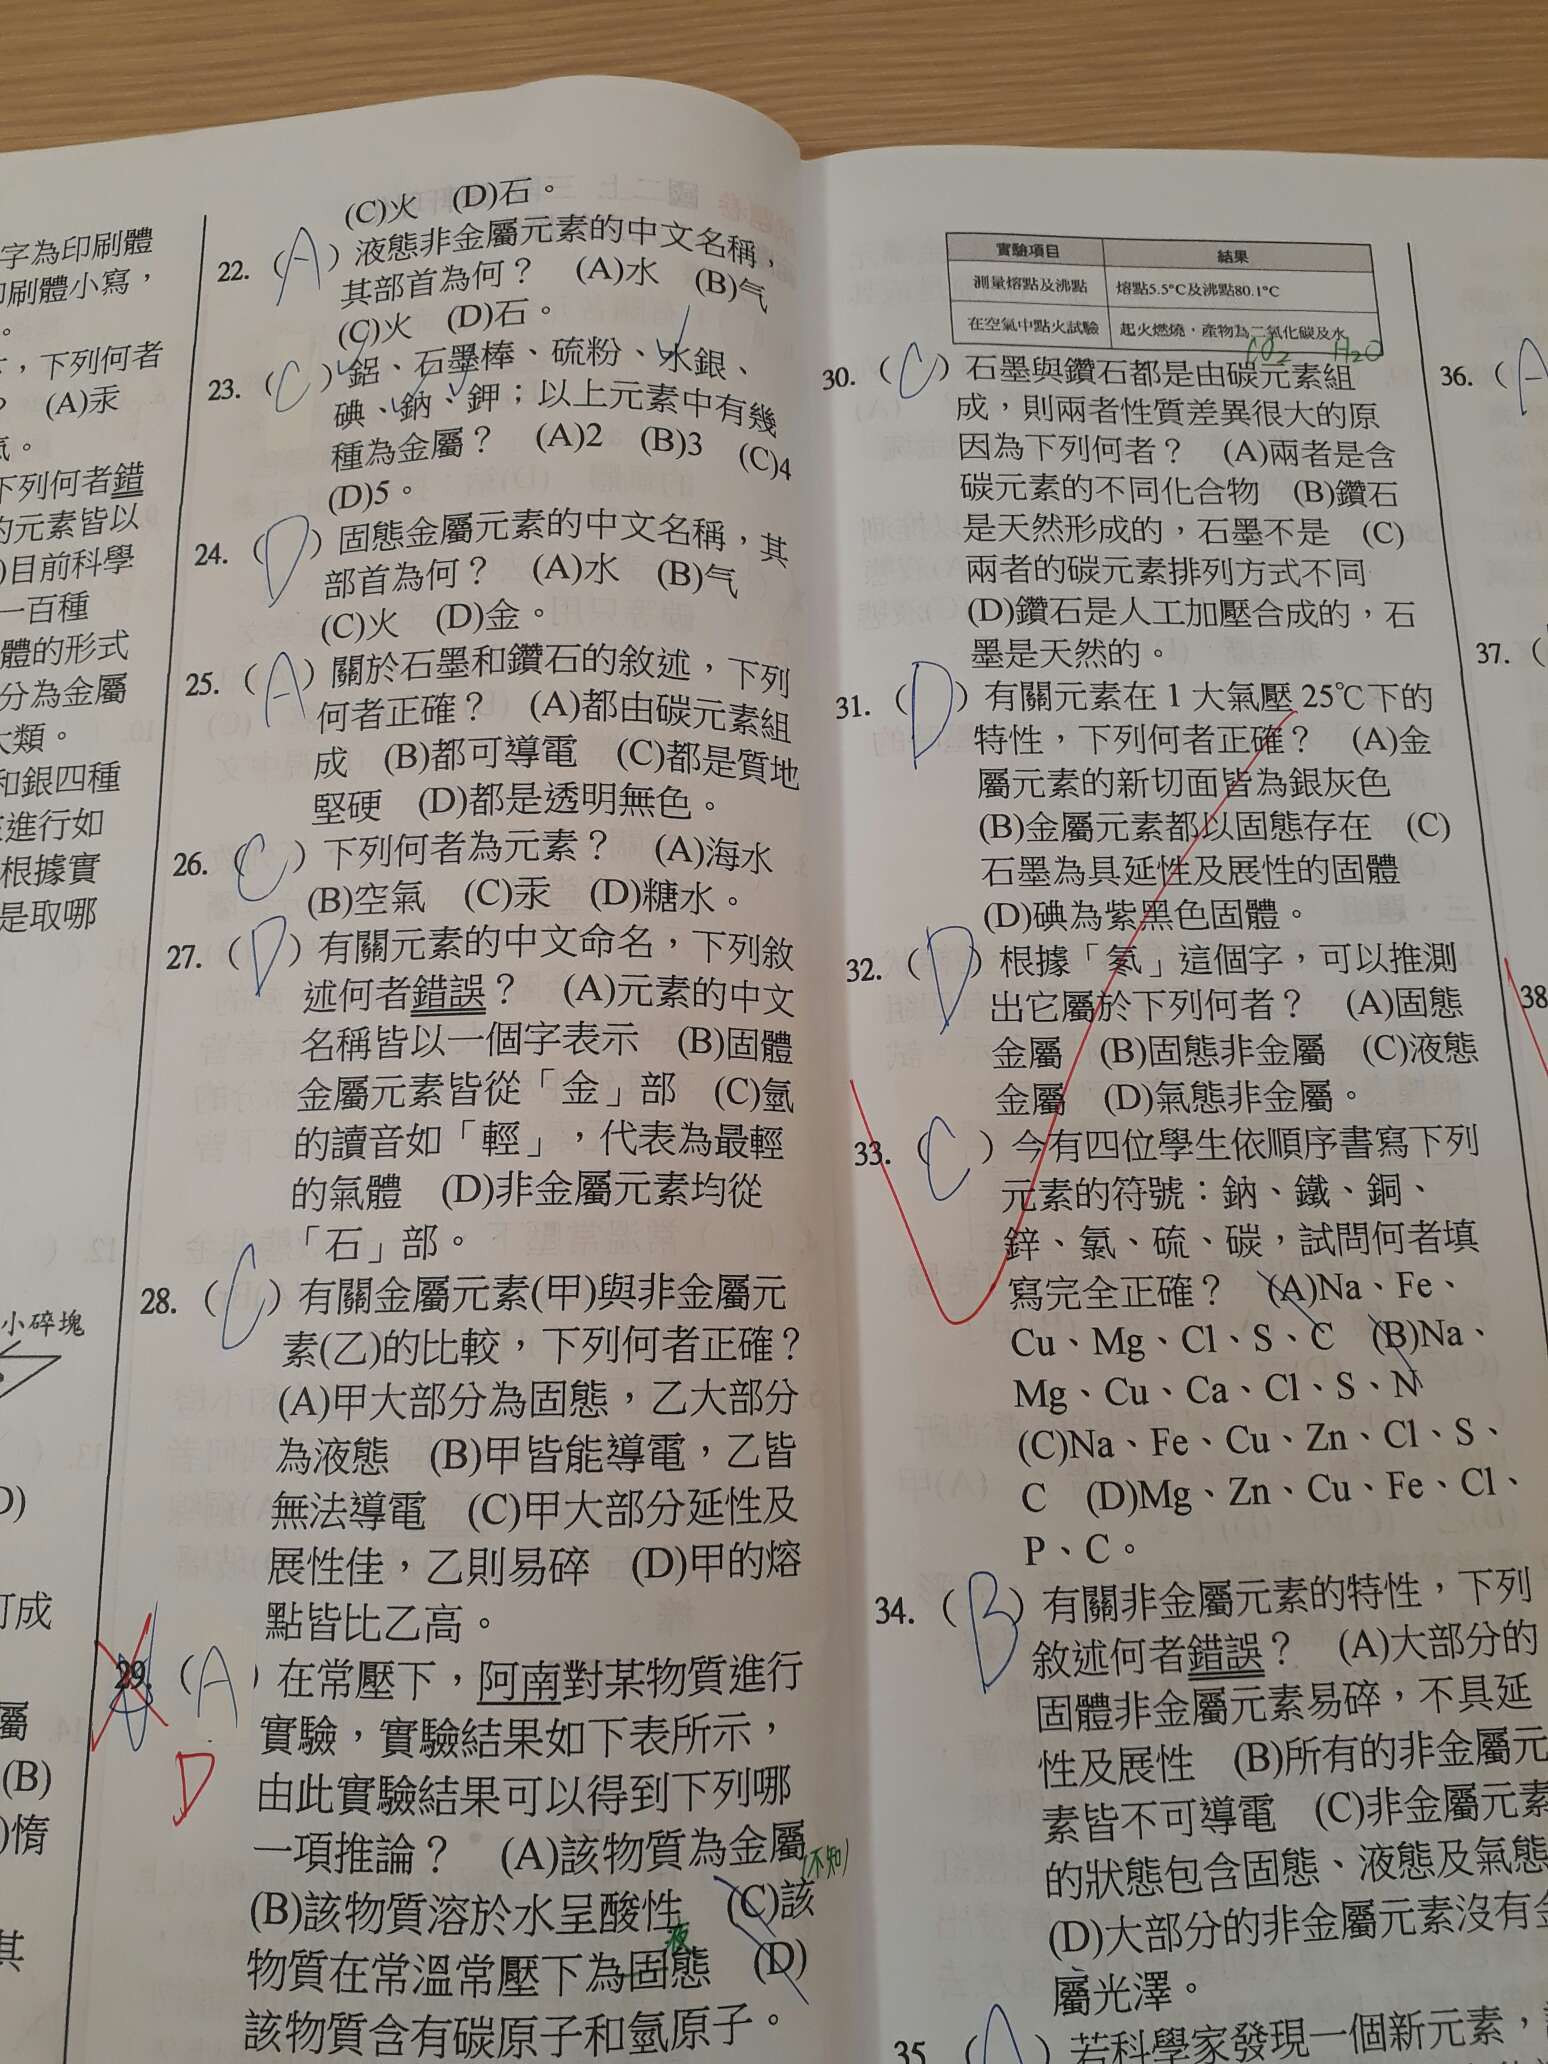 字為印刷體
印刷體小寫，
。
，下列何者
？ (A)汞
氣。
下列何者錯
的元素皆以
)目前科學
一百種
體的形式
分為金屬
大類。
和銀四種
進行如
根據實
是取哪
小碎塊
D)
可成
屬
(B)
)惰
其
(C)火 (D)石。
22. (A) 液態非金屬元素的中文名稱，
其部首為何？ (A)水 (B)气
(C)火 (D)石。
23. (C) 鋁、石墨棒、硫粉、水銀、
碘、鈉、鉀；以上元素中有幾
種為金屬？ (A)2 (B)3 (C)4
(D)5。
24. (D) 固態金屬元素的中文名稱，其
部首為何？ (A)水 (B)气
(C)火 (D)金。
25. (A) 關於石墨和鑽石的敘述，下列
何者正確？ (A)都由碳元素組
成 (B)都可導電 (C)都是質地
堅硬 (D)都是透明無色。
26. (C) 下列何者為元素？ (A)海水
(B)空氣 (C)汞 (D)糖水。
27. (D) 有關元素的中文命名，下列敘
述何者錯誤？ (A)元素的中文
名稱皆以一個字表示 (B)固體
金屬元素皆從「金」部 (C)氫
的讀音如「輕」，代表為最輕
的氣體 (D)非金屬元素均從
「石」部。
28. (C) 有關金屬元素(甲)與非金屬元
素(乙)的比較，下列何者正確？
(A)甲大部分為固態，乙大部分
為液態 (B)甲皆能導電，乙皆
無法導電 (C)甲大部分延性及
展性佳，乙則易碎 (D)甲的熔
點皆比乙高。
29. (A) 在常壓下，阿南對某物質進行
實驗，實驗結果如下表所示，
D
由此實驗結果可以得到下列哪
一項推論？ (A)該物質為金屬
(不知)
(B)該物質溶於水呈酸性 (C)該
液
物質在常溫常壓下為固態 (D)
該物質含有碳原子和氫原子。
實驗項目 結果
測量熔點及沸點 熔點5.5°C及沸點80.1°C
在空氣中點火試驗 起火燃燒，產物為二氧化碳及水
CO2 H2O
30. (C) 石墨與鑽石都是由碳元素組
成，則兩者性質差異很大的原
因為下列何者？ (A)兩者是含
碳元素的不同化合物 (B)鑽石
是天然形成的，石墨不是 (C)
兩者的碳元素排列方式不同
(D)鑽石是人工加壓合成的，石
墨是天然的。
31. (D) 有關元素在 1 大氣壓 25℃下的
特性，下列何者正確？ (A)金
屬元素的新切面皆為銀灰色
(B)金屬元素都以固態存在 (C)
石墨為具延性及展性的固體
(D)碘為紫黑色固體。
32. (D) 根據「氡」這個字，可以推測
出它屬於下列何者？ (A)固態
金屬 (B)固態非金屬 (C)液態
金屬 (D)氣態非金屬。
33. (C) 今有四位學生依順序書寫下列
元素的符號：鈉、鐵、銅、
鋅、氯、硫、碳，試問何者填
寫完全正確？ (A)Na、Fe、
Cu、Mg、Cl、S、C (B)Na、
Mg、Cu、Ca、Cl、S、N
(C)Na、Fe、Cu、Zn、Cl、S、
C (D)Mg、Zn、Cu、Fe、Cl、
P、C。
34. (B) 有關非金屬元素的特性，下列
敘述何者錯誤？ (A)大部分的
固體非金屬元素易碎，不具延
性及展性 (B)所有的非金屬元
素皆不可導電 (C)非金屬元素
的狀態包含固態、液態及氣態
(D)大部分的非金屬元素沒有金
屬光澤。
35 (A) 若科學家發現一個新元素，
36. (A
37. (
38